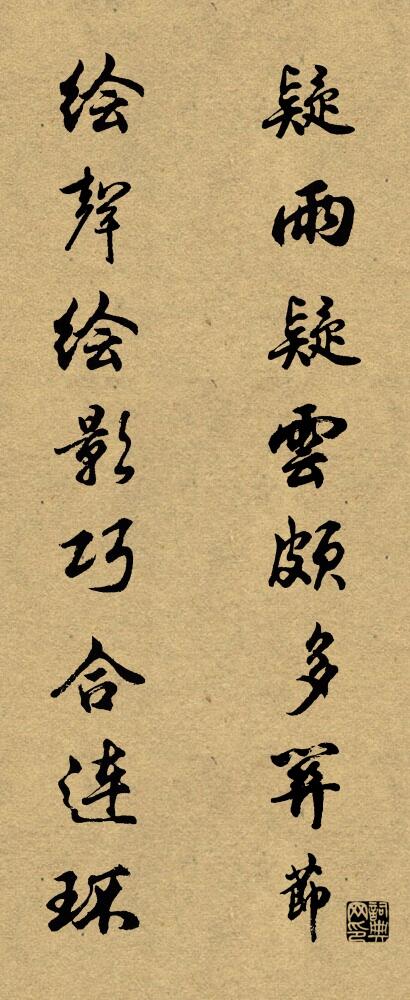 疑雨疑雲頗多關節
绘聲绘影巧合連环
詞典网印